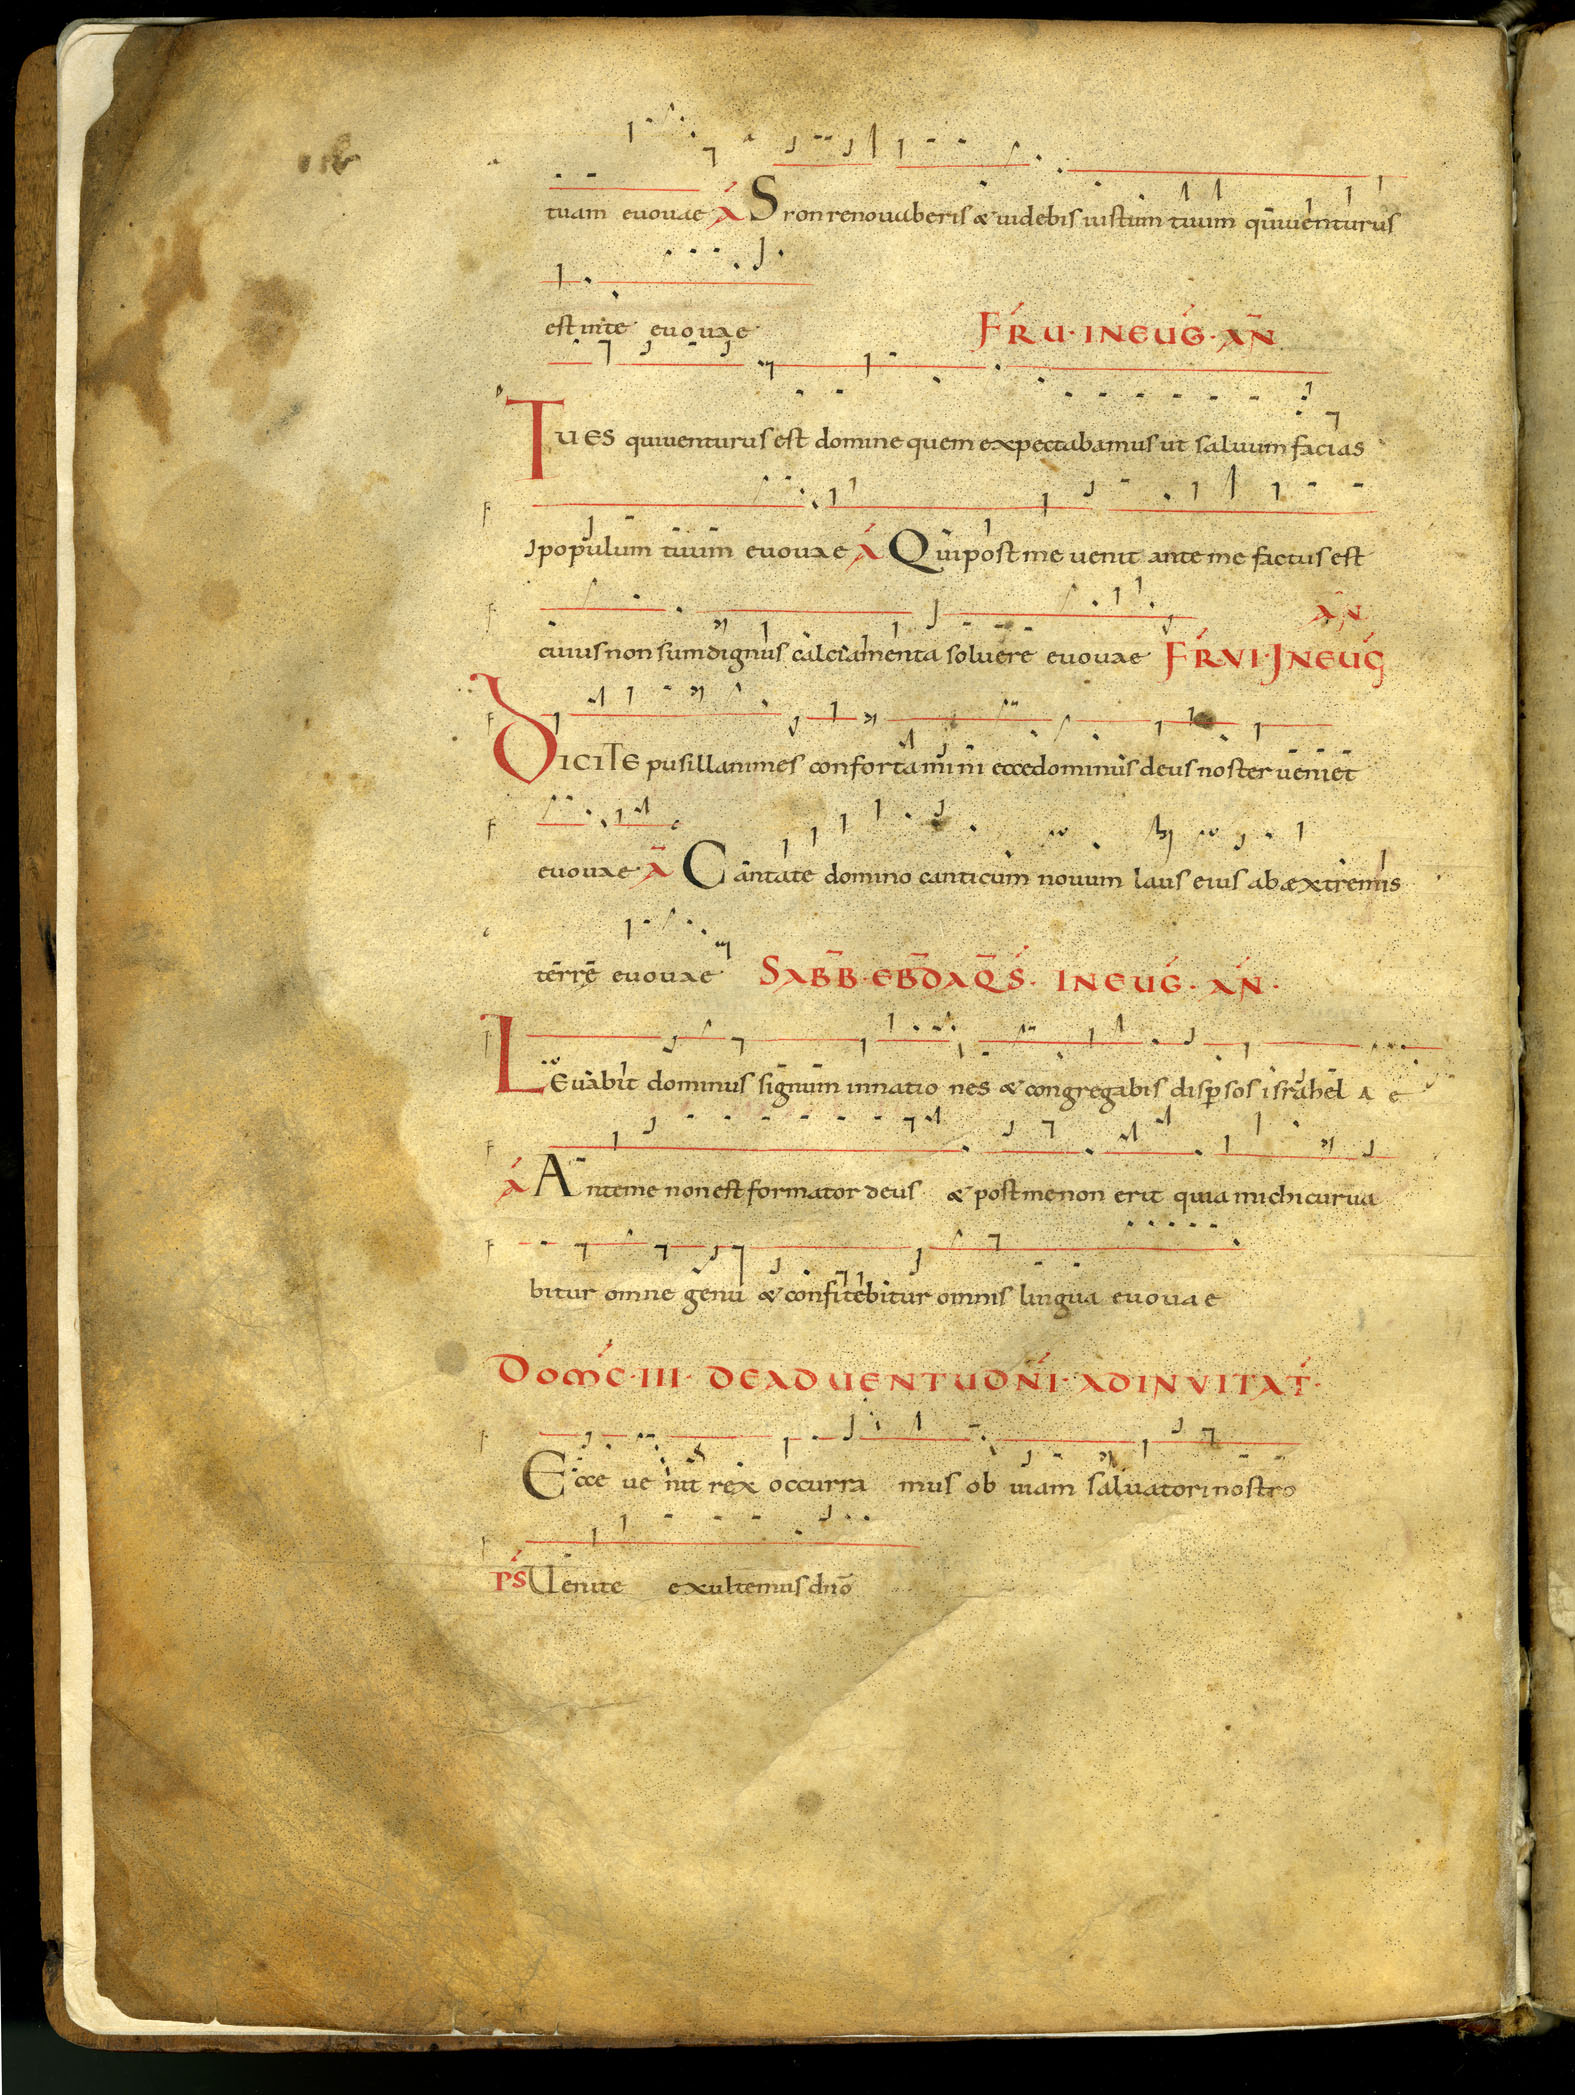 tuam euouae A Sion renouaberis & uidebis iustum tuum qui uenturus
est in te euouae FR̄ U· IN EUḠ· AN̄
TU ES qui uenturus est domine quem expectabamus ut saluum facias
populum tuum euouae A Qui post me uenit ante me factus est
AN̄
cuius non sum dignus calciamenta soluere euouae FR̄ VI· IN EUḠ
DICITE pusillanimes confortamini ecce dominus deus noster ueniet
euouae A Cantate domino canticum nouum laus eius ab extremis
terrę euouae SABB̄· EBD̄A QS̄· IN EUḠ· AN̄·
LEuabit dominus signum in natio nes & congregabis dispersos israhel A e
A Ante me non est formator deus & post me non erit quia michi curua
bitur omne genu & confitebitur omnis lingua euouae
DOMC̄· III· DE ADUENTU DN̄I· AD INVITAT̄·
Ecce ue nit rex occurra mus ob uiam saluatori nostro
PS̄ Uenite exultemus dnō